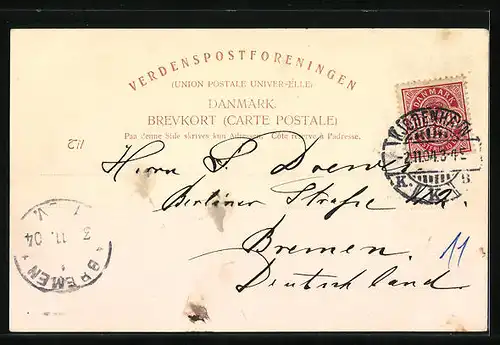 VERDENSPOSTFORENINGEN
(UNION POSTALE UNIVER-ELLE)
DANMARK.
BREVKORT (CARTE POSTALE)
Paa denne Side skrives kun Adressen. Côté réservé à l'adresse.
DANMARK
KJØBENHAVN
2.11.04. 3-4 E
K. K. B
112
Herrn
Berliner Straße
Bremen.
Deutschland.
11
BREMEN
3. 11. 04